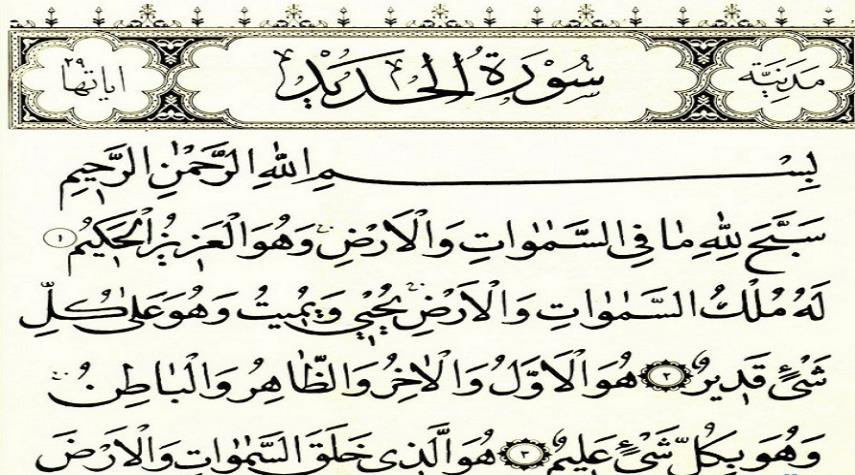 مَدَنِيَّة سُورَةُ الْحَدِيدِ اٰيَاتُهَا ٢٩
بِسْمِ اللّٰهِ الرَّحْمٰنِ الرَّحِيمِ
سَبَّحَ لِلّٰهِ مَا فِي السَّمٰوَاتِ وَالْاَرْضِ وَهُوَ الْعَزِيزُ الْحَكِيمُ ١
لَهُ مُلْكُ السَّمٰوَاتِ وَالْاَرْضِ يُحْيِي وَيُمِيتُ وَهُوَ عَلٰى كُلِّ
شَيْءٍ قَدِيرٌ ٢ هُوَ الْاَوَّلُ وَالْاٰخِرُ وَالظَّاهِرُ وَالْبَاطِنُ
وَهُوَ بِكُلِّ شَيْءٍ عَلِيمٌ ٣ هُوَ الَّذِي خَلَقَ السَّمٰوَاتِ وَالْاَرْضَ